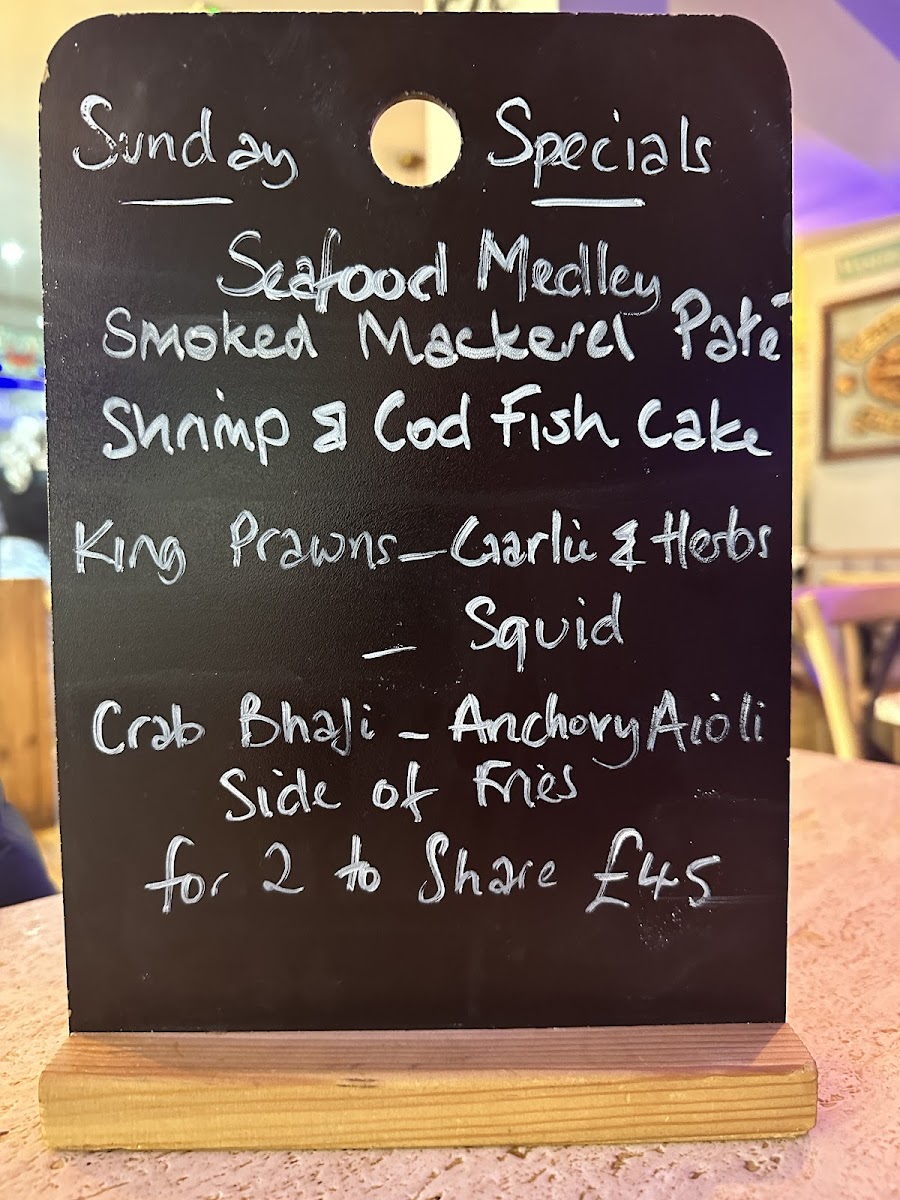 Sunday Specials
Seafood Medley
Smoked Mackerel Paté
Shrimp & Cod Fish Cake
King Prawns - Garlic & Herbs
- Squid
Crab Bhaji - Anchovy Aioli
Side of Fries
for 2 to Share £45